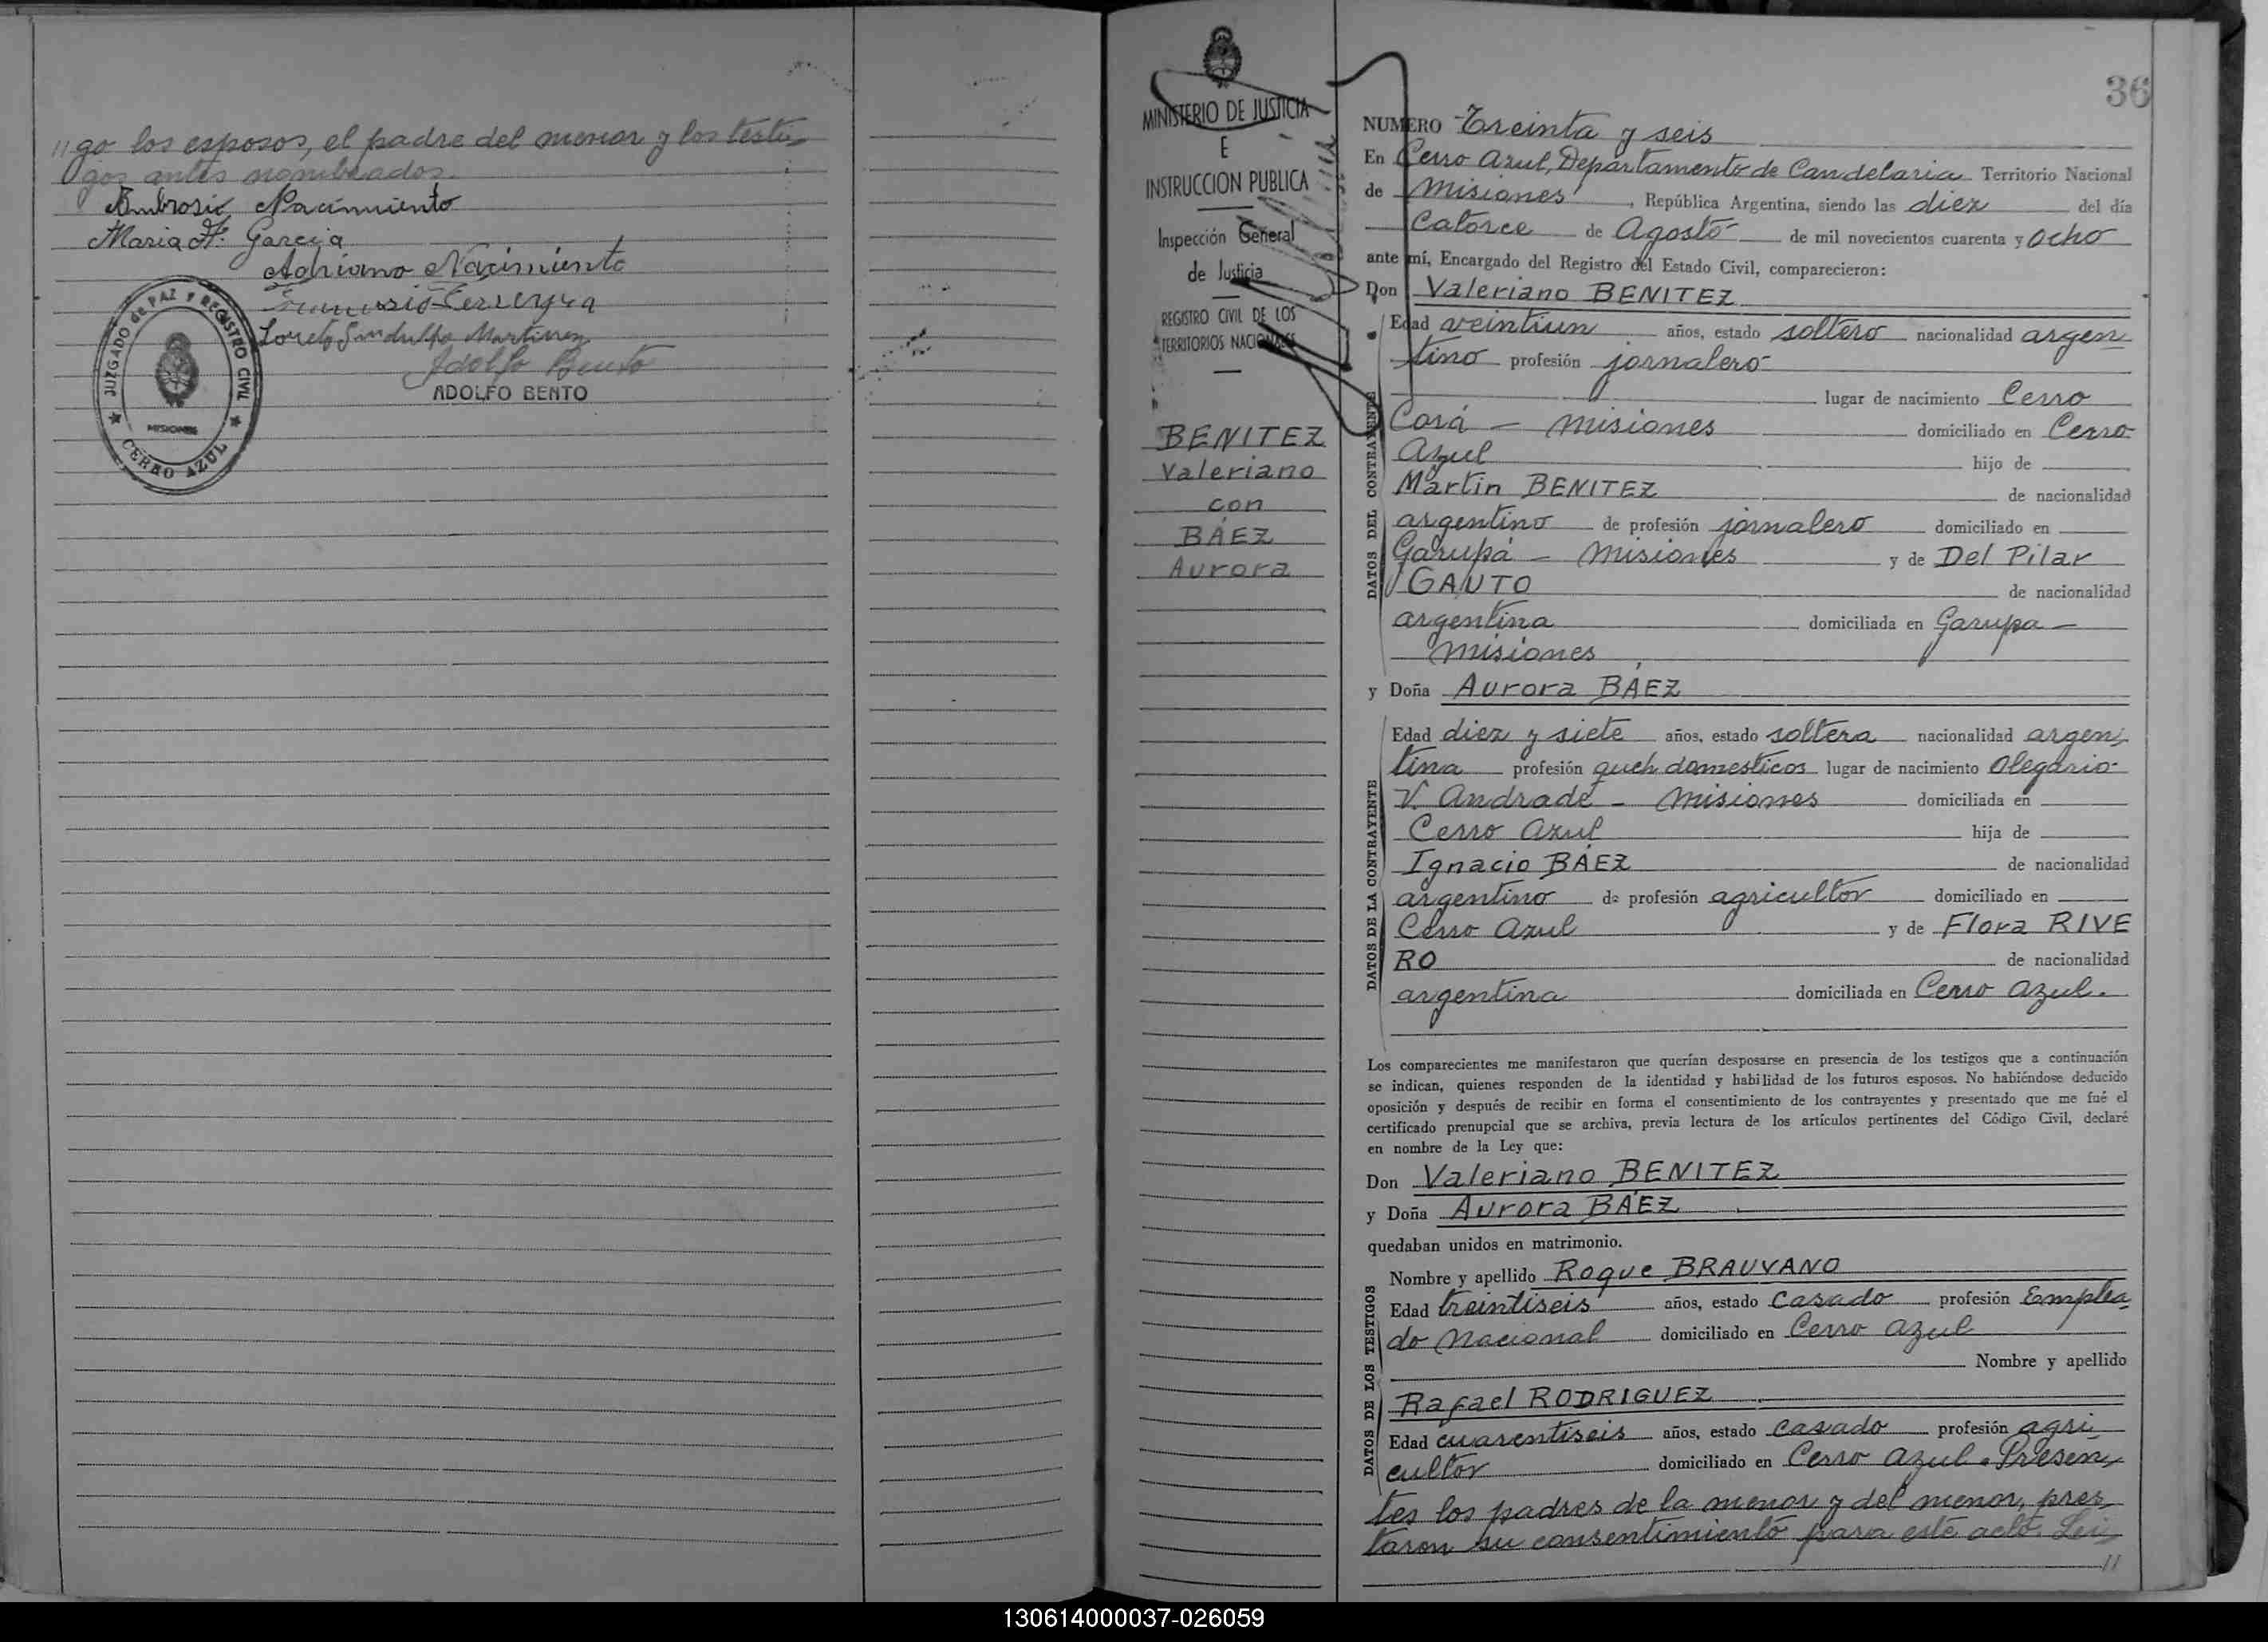 //go los esposos, el padre del menor y los testi-
gos antes nombrados.
Ambrosio Nacimiento
Maria F. Garcia
Adriano Nacimiento
Ferreyra
Loreto Gandulfo Martinez
Adolfo Bento
ADOLFO BENTO
JUZGADO de PAZ Y REGISTRO CIVIL
MISIONES
CERRO AZUL
MINISTERIO DE JUSTICIA
E
INSTRUCCION PUBLICA
Inspección General
de Justicia
REGISTRO CIVIL DE LOS
TERRITORIOS NACIONALES
BENITEZ
Valeriano
con
BÁEZ
Aurora
36
NUMERO Treinta y seis
En Cerro Azul, Departamento de Candelaria Territorio Nacional
de Misiones, República Argentina, siendo las diez del día
Catorce de Agosto de mil novecientos cuarenta y ocho
ante mí, Encargado del Registro del Estado Civil, comparecieron:
Don Valeriano BENITEZ
DATOS DEL CONTRAYENTE
Edad veintiun años, estado soltero nacionalidad argen-
tino profesión jornalero
lugar de nacimiento Cerro
Corá - Misiones domiciliado en Cerro
Azul hijo de
Martin BENITEZ de nacionalidad
argentino de profesión jornalero domiciliado en
Garupá - Misiones y de Del Pilar
GAUTO de nacionalidad
argentina domiciliada en Garupa -
Misiones
y Doña Aurora BÁEZ
DATOS DE LA CONTRAYENTE
Edad diez y siete años, estado soltera nacionalidad argen-
tina profesión queh. domesticos lugar de nacimiento Olegario
V. Andrade - Misiones domiciliada en
Cerro Azul hija de
Ignacio BÁEZ de nacionalidad
argentino de profesión agricultor domiciliado en
Cerro Azul y de Flora RIVE
RO de nacionalidad
argentina domiciliada en Cerro Azul.
Los comparecientes me manifestaron que querían desposarse en presencia de los testigos que a continuación
se indican, quienes responden de la identidad y habilidad de los futuros esposos. No habiéndose deducido
oposición y después de recibir en forma el consentimiento de los contrayentes y presentado que me fué el
certificado prenupcial que se archiva, previa lectura de los artículos pertinentes del Código Civil, declaré
en nombre de la Ley que:
Don Valeriano BENITEZ
y Doña Aurora BÁEZ
quedaban unidos en matrimonio.
DATOS DE LOS TESTIGOS
Nombre y apellido Roque BRAUVANO
Edad treintiseis años, estado casado profesión Emplea-
do Nacional domiciliado en Cerro Azul
Nombre y apellido
Rafael RODRIGUEZ
Edad cuarentiseis años, estado casado profesión agri-
cultor domiciliado en Cerro Azul. Presen-
tes los padres de la menor y del menor, pres-
taron su consentimiento para este acto. Lei-
//
130614000037-026059